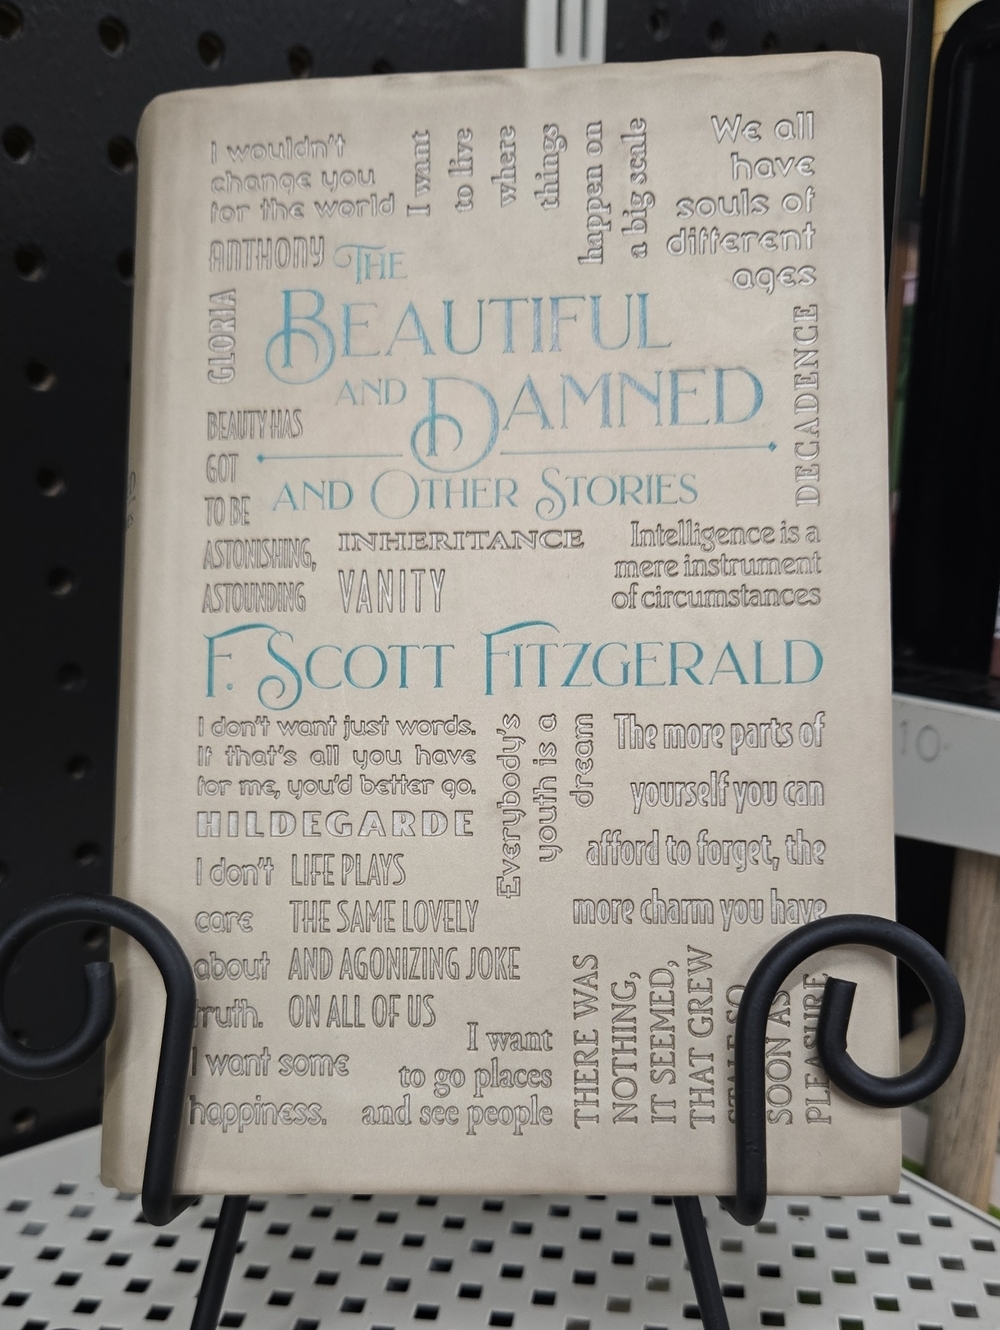 I wouldn't
change you
for the world
I want
to live
where
things
happen on
a big scale
We all
have
souls of
different
ages
ANTHONY
GLORIA
THE
BEAUTIFUL
AND DAMNED
AND OTHER STORIES
DECADENCE
BEAUTY HAS
GOT
TO BE
ASTONISHING,
ASTOUNDING
INHERITANCE
VANITY
Intelligence is a
mere instrument
of circumstances
F. SCOTT FITZGERALD
I don't want just words.
If that's all you have
for me, you'd better go.
HILDEGARDE
Everybody's
youth is a
dream
The more parts of
yourself you can
afford to forget, the
more charm you have
I don't
care
about
truth.
I want some
happiness.
LIFE PLAYS
THE SAME LOVELY
AND AGONIZING JOKE
ON ALL OF US
I want
to go places
and see people
THERE WAS
NOTHING,
IT SEEMED,
THAT GREW
STALE SO
SOON AS
PLEASURE
10